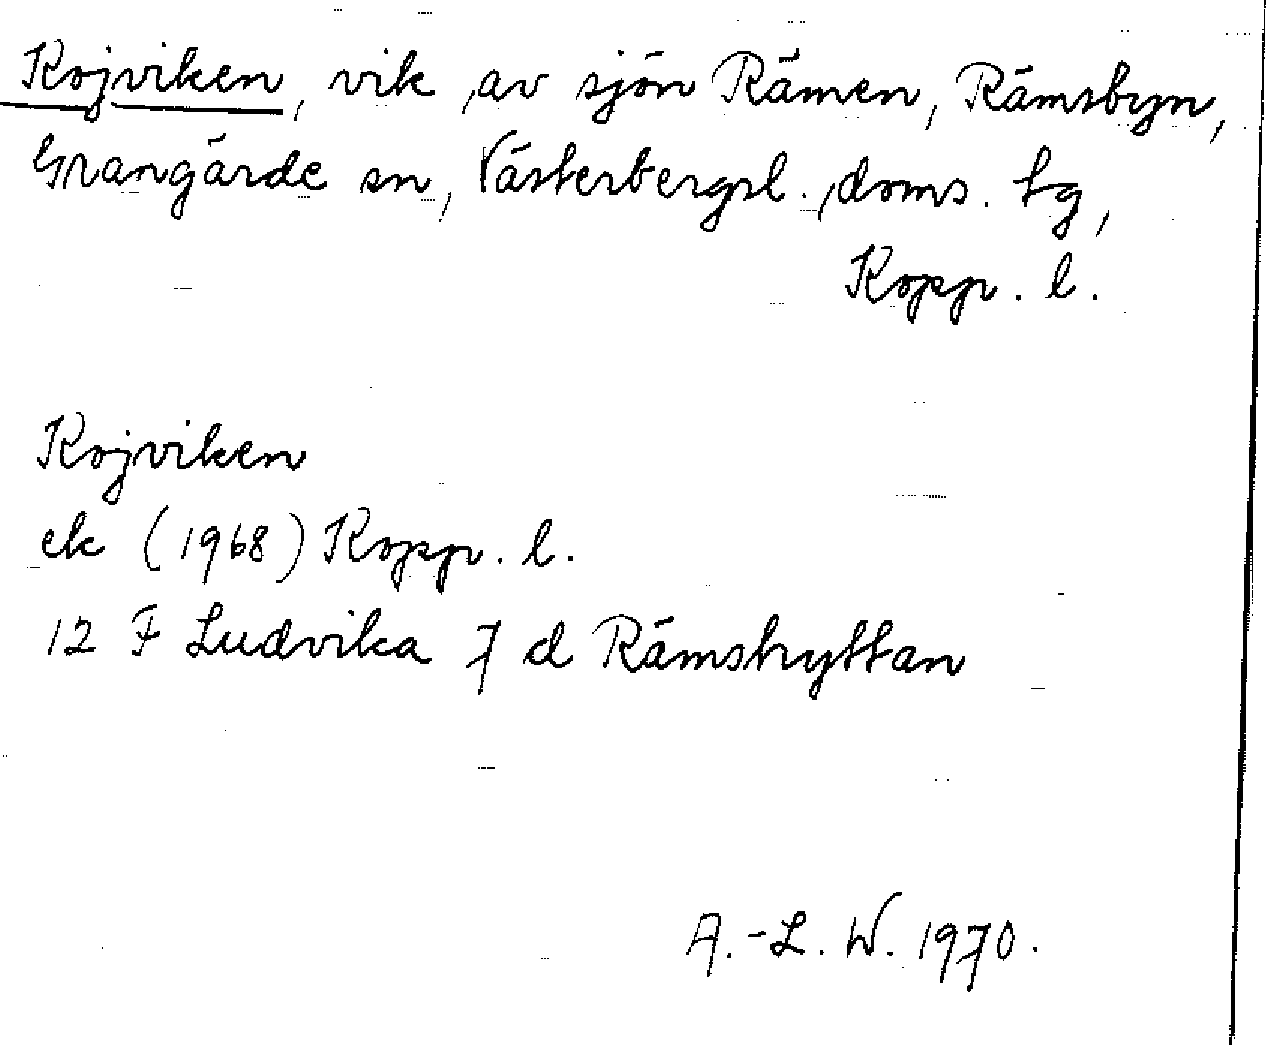 Kojviken, vik av sjön Rämen, Rämsbyn,
Grangärde sn, Västerbergsl. doms. tg,
Kopp. l.
Kojviken
ek (1968) Kopp. l.
12 F Ludvika 7 d Rämshyttan
A.-L. W. 1970.